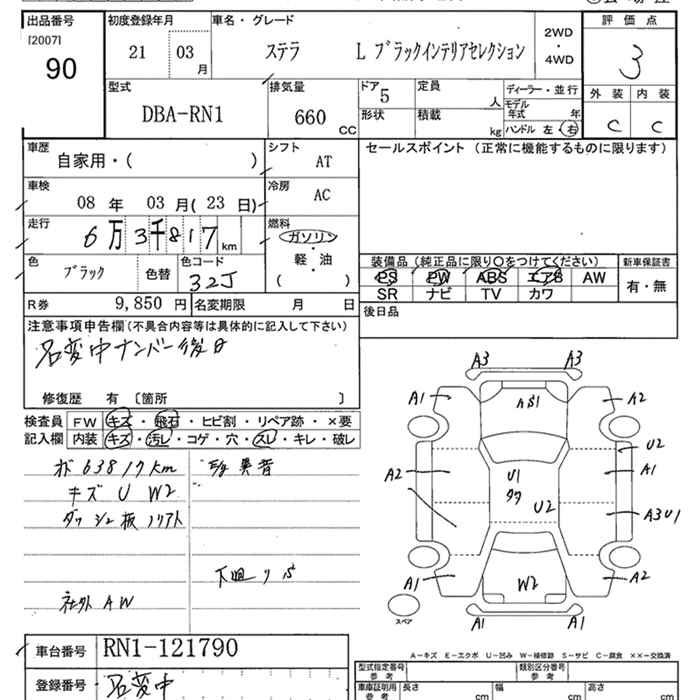 出品番号 初度登録年月 車名・グレード 評価点
[2007]
90 21 03 月 ステラ L ブラックインテリアセレクション 2WD ・ 4WD 3
型式 排気量 ドア 5 定員 人 ディーラー・並行 外装 内装
DBA-RN1 660 CC 形状 積載 kg モデル年式 年 ハンドル 左・右 C C
車歴 自家用・( ) シフト AT セールスポイント(正常に機能するものに限ります)
車検 08 年 03 月(23 日) 冷房 AC
走行 6万3千817 km 燃料 ガソリン 軽・油 ( )
色 ブラック 色替 色コード 32J 装備品(純正品に限り○をつけてください) 新車保証書
PS PW ABS エアB AW 有・無
SR ナビ TV カワ
R券 9,850 円 名変期限 月 日 後日品
注意事項申告欄(不具合内容等は具体的に記入して下さい)
名変中ナンバー後日
修復歴 有 〔箇所 〕
検査員 FW キズ・飛石・ヒビ割・リペア跡・×要
記入欄 内装 キズ・汚レ・コゲ・穴・スレ・キレ・破レ
63817km 異音
キズ U W2
ダッシュ板
下廻り
社外AW
A3 A3
A1 A2
U2
A2 A1
U1 U2 A3U1
A1 W2 A2
A1 A1
スペア
A-キズ E-エクボ U-凹み W-補修跡 S-サビ C-腐食 ××-交換済
車台番号 RN1-121790
登録番号 名変中
型式指定番号 参考 類別区分番号 参考
車庫証明用 参考 長さ cm 幅 cm 高さ cm